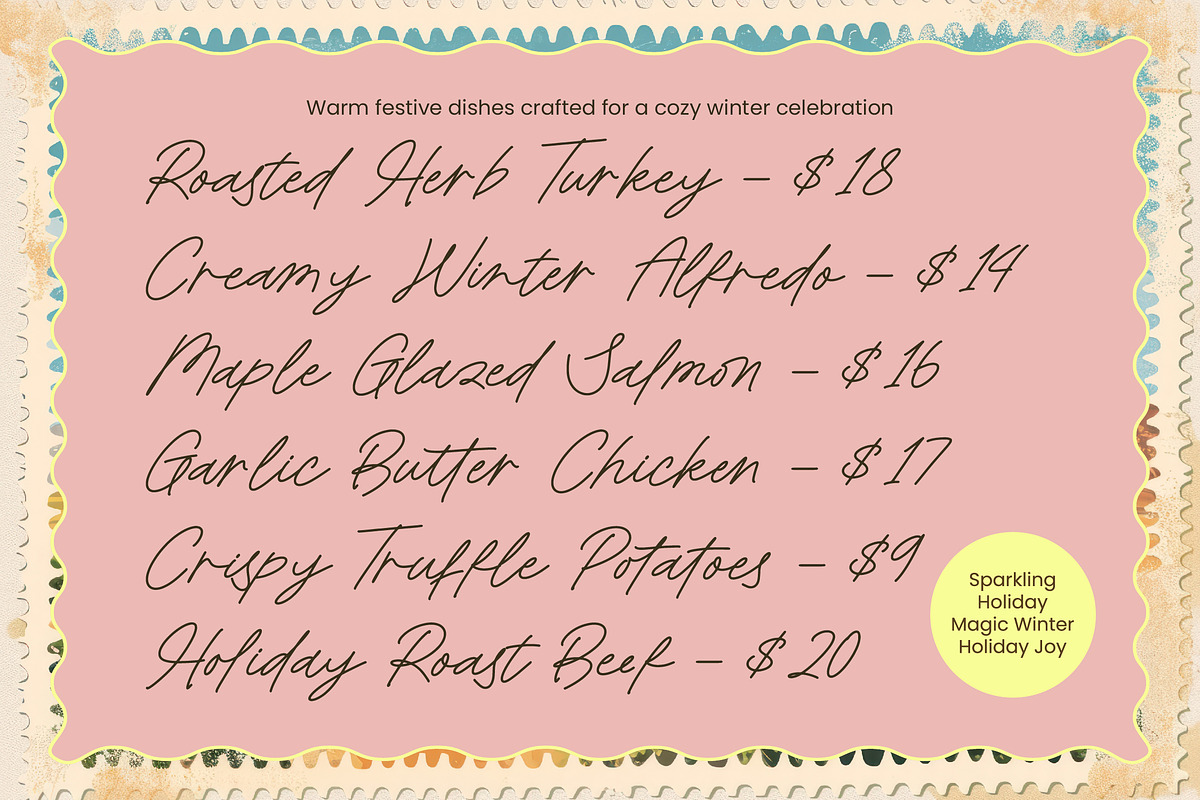 Warm festive dishes crafted for a cozy winter celebration
Roasted Herb Turkey – $18
Creamy Winter Alfredo – $14
Maple Glazed Salmon – $16
Garlic Butter Chicken – $17
Crispy Truffle Potatoes – $9
Holiday Roast Beef – $20
Sparkling
Holiday
Magic Winter
Holiday Joy